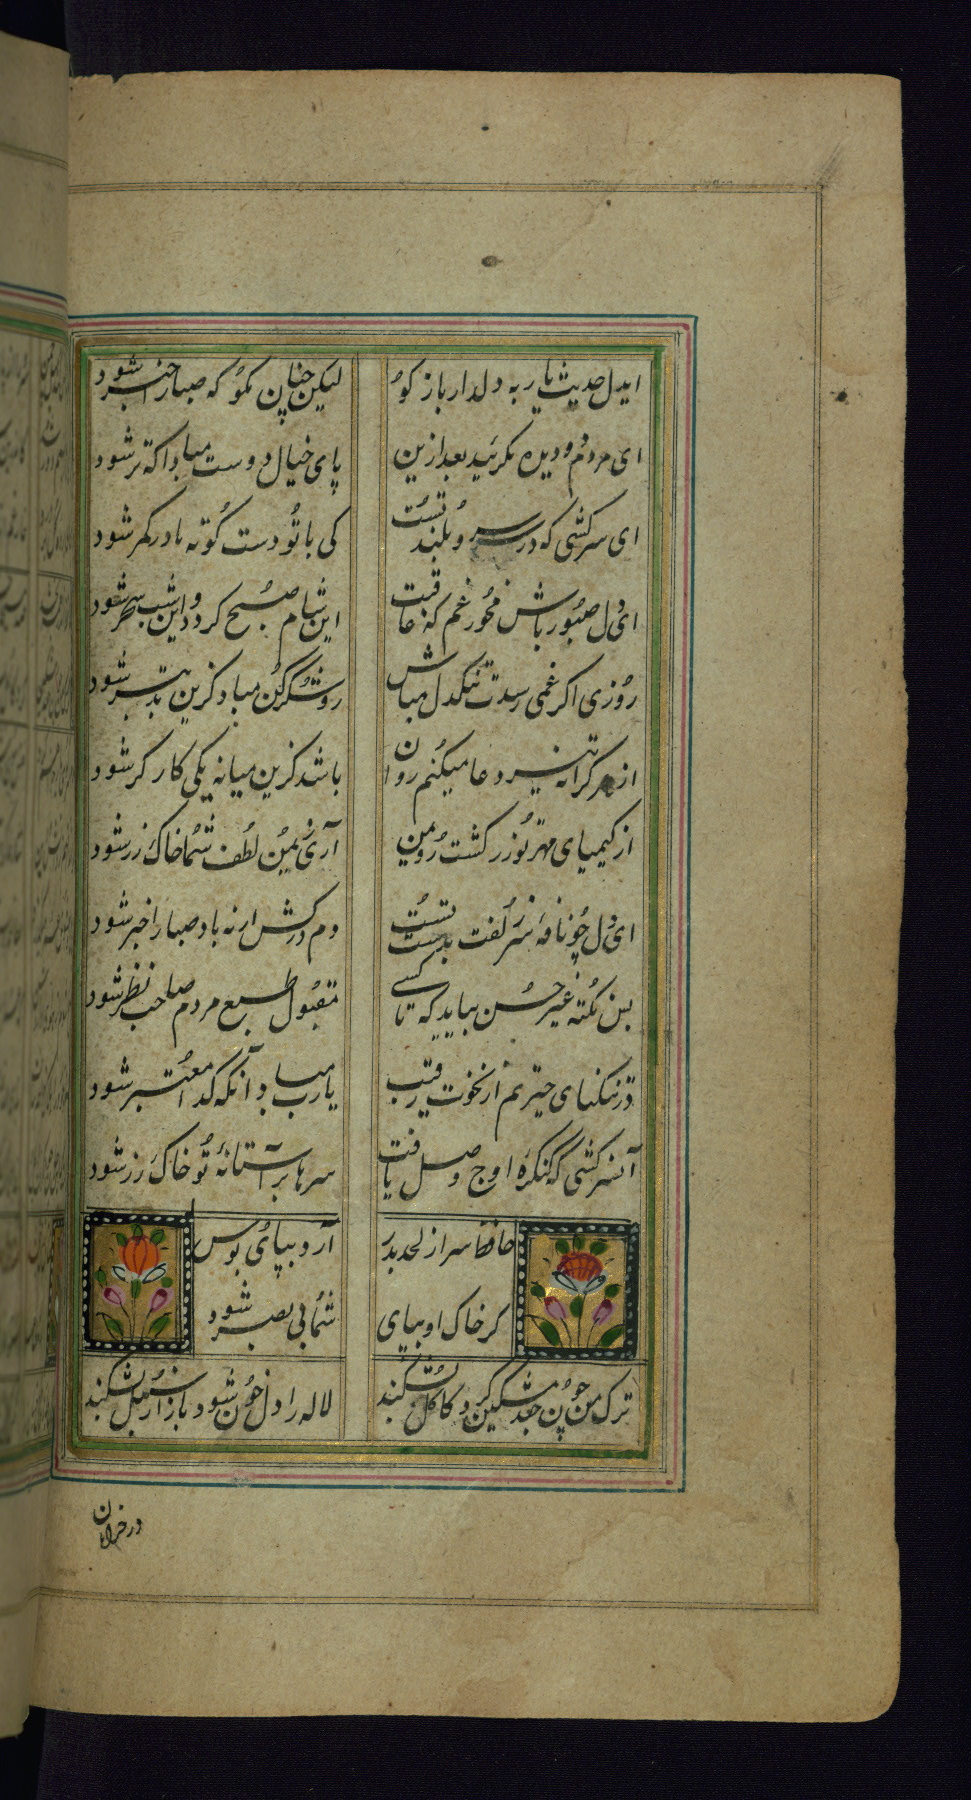 ایدل حدیث یار به دلدار باز کو
لیکن چنان مکو که صبا را خبر شود
ای مردم دو دیده مکرئید بعد ازین
پای خیال دوست مبادا که تر شود
ای سرکشی که در سر و بلند تست
کی با تو دست کوته ما در کمر شود
ای دل صبور باش مخور غم که عاقبت
این شام صبح کردد و این شب سحر شود
روزی اکر غمی رسدت تنکدل مباش
رو شکر کن مباد کزین بد بتر شود
از هر کرانه تیر دعا میکنم روان
باشد کزین میانه یکی کار کر شود
از کیمیای مهر تو زر کشت روی من
آری ز یمن لطف شما خاک زر شود
ای دل چو نافه سر زلفت بدست تست
دم درکش ار نه باد صبا را خبر شود
بس نکته غیر حسن بباید که تا کسی
مقبول طبع مردم صاحب نظر شود
در تنکنای حیرتم از نخوت رقیب
یا رب مباد آنکه کدا معتبر شود
آن سرکشی که کنکره اوج وصل یافت
سرها بر آستانه تو خاک در شود
حافظا سر از لحد بدر
آرد بپای بوس
کر خاک او بپای
شما بی بصر شود
ترک من چون جعد مشکین کرد کاکل بشکند
لاله را دل خون شود بازار سنبل بشکند
در خرامان